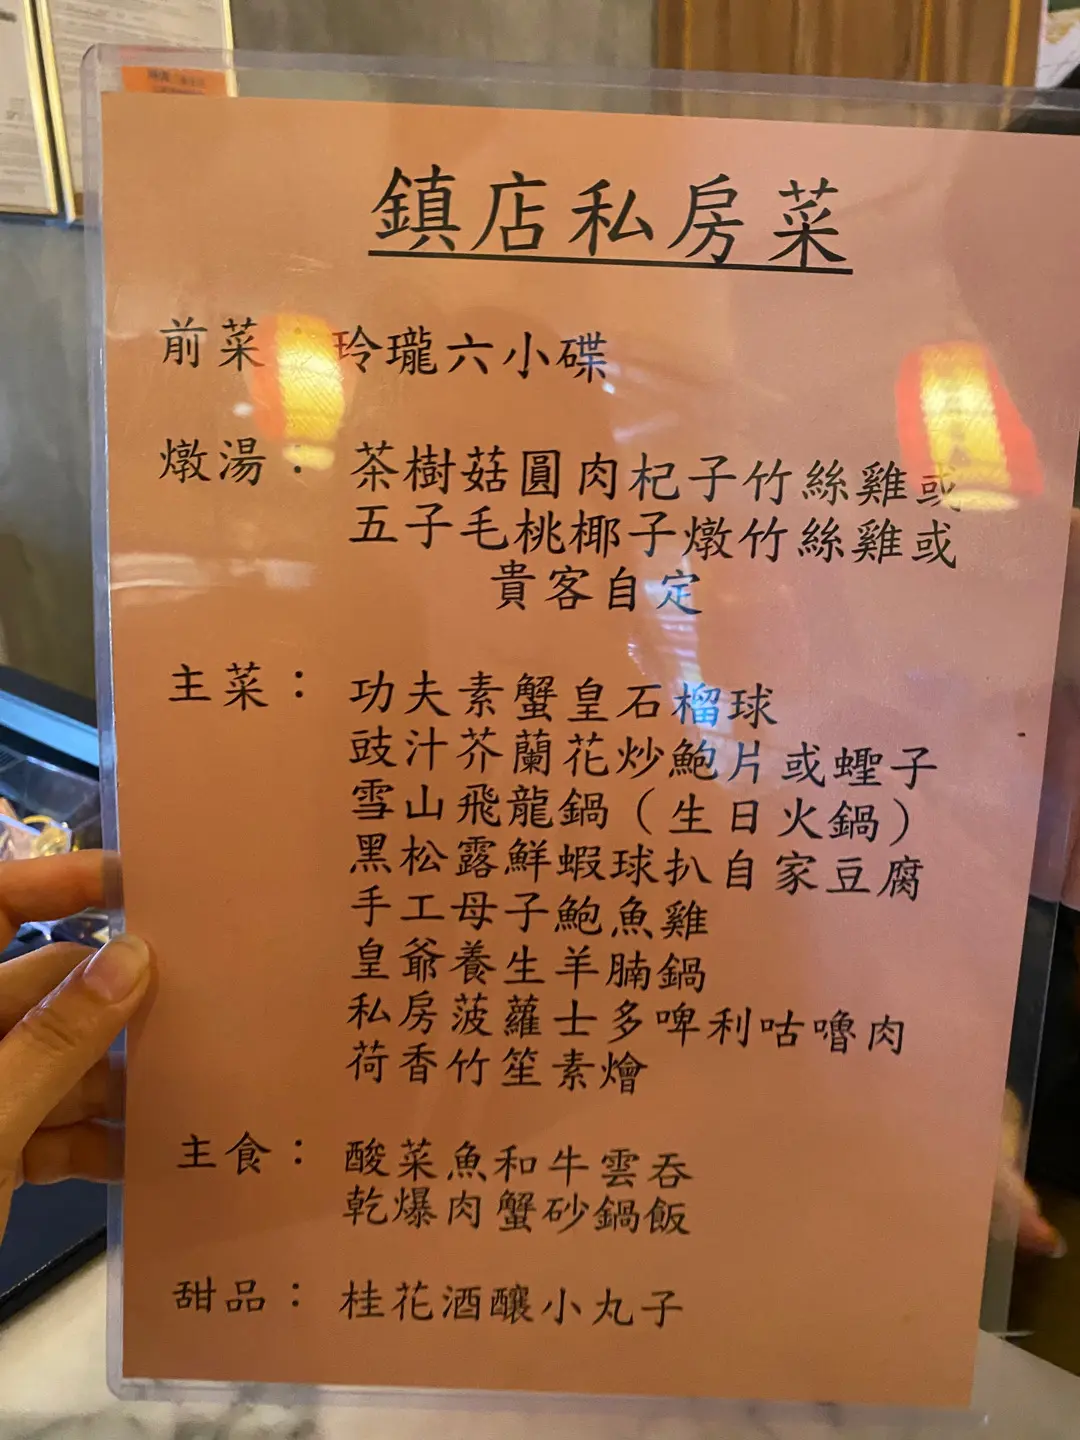 鎮店私房菜
前菜：玲瓏六小碟
燉湯：茶樹菇圓肉杞子竹絲雞或
五子毛桃椰子燉竹絲雞或
貴客自定
主菜：功夫素蟹皇石榴球
豉汁芥蘭花炒鮑片或蟶子
雪山飛龍鍋（生日火鍋）
黑松露鮮蝦球扒自家豆腐
手工母子鮑魚雞
皇爺養生羊腩鍋
私房菠蘿士多啤利咕嚕肉
荷香竹笙素燴
主食：酸菜魚和牛雲吞
乾爆肉蟹砂鍋飯
甜品：桂花酒釀小丸子